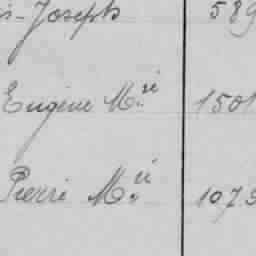 s-Joseph 589
Eugène M.ie 1501
Pierre M.ie 1079